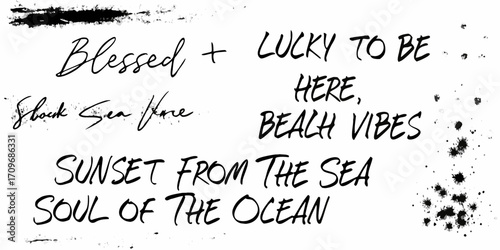 Blessed +
LUCKY TO BE
HERE,
BEACH VIBES
Sea
SUNSET FROM THE SEA
SOUL OF THE OCEAN
Adobe Stock | #1709686331